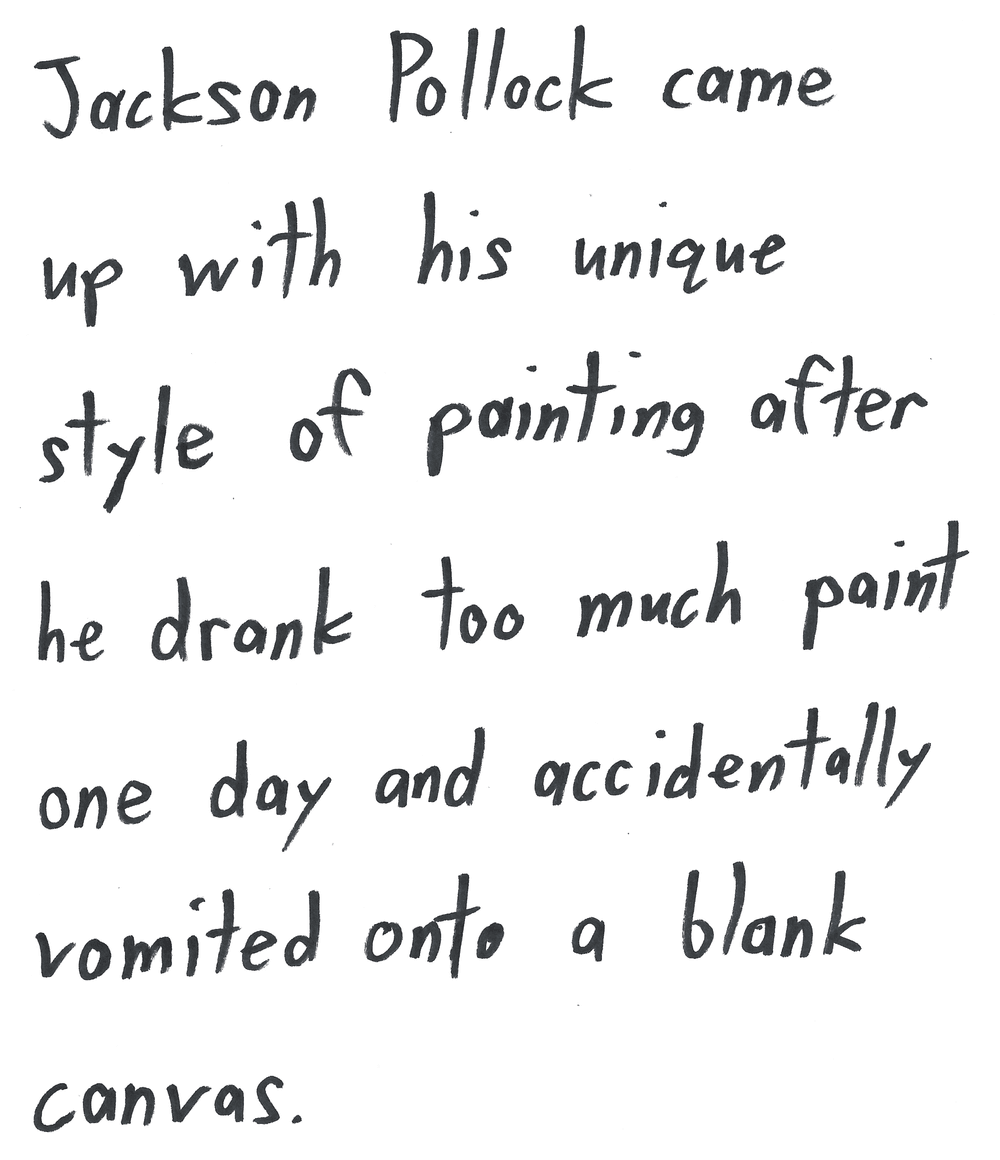 Jackson Pollock came
up with his unique
style of painting after
he drank too much paint
one day and accidentally
vomited onto a blank
canvas.